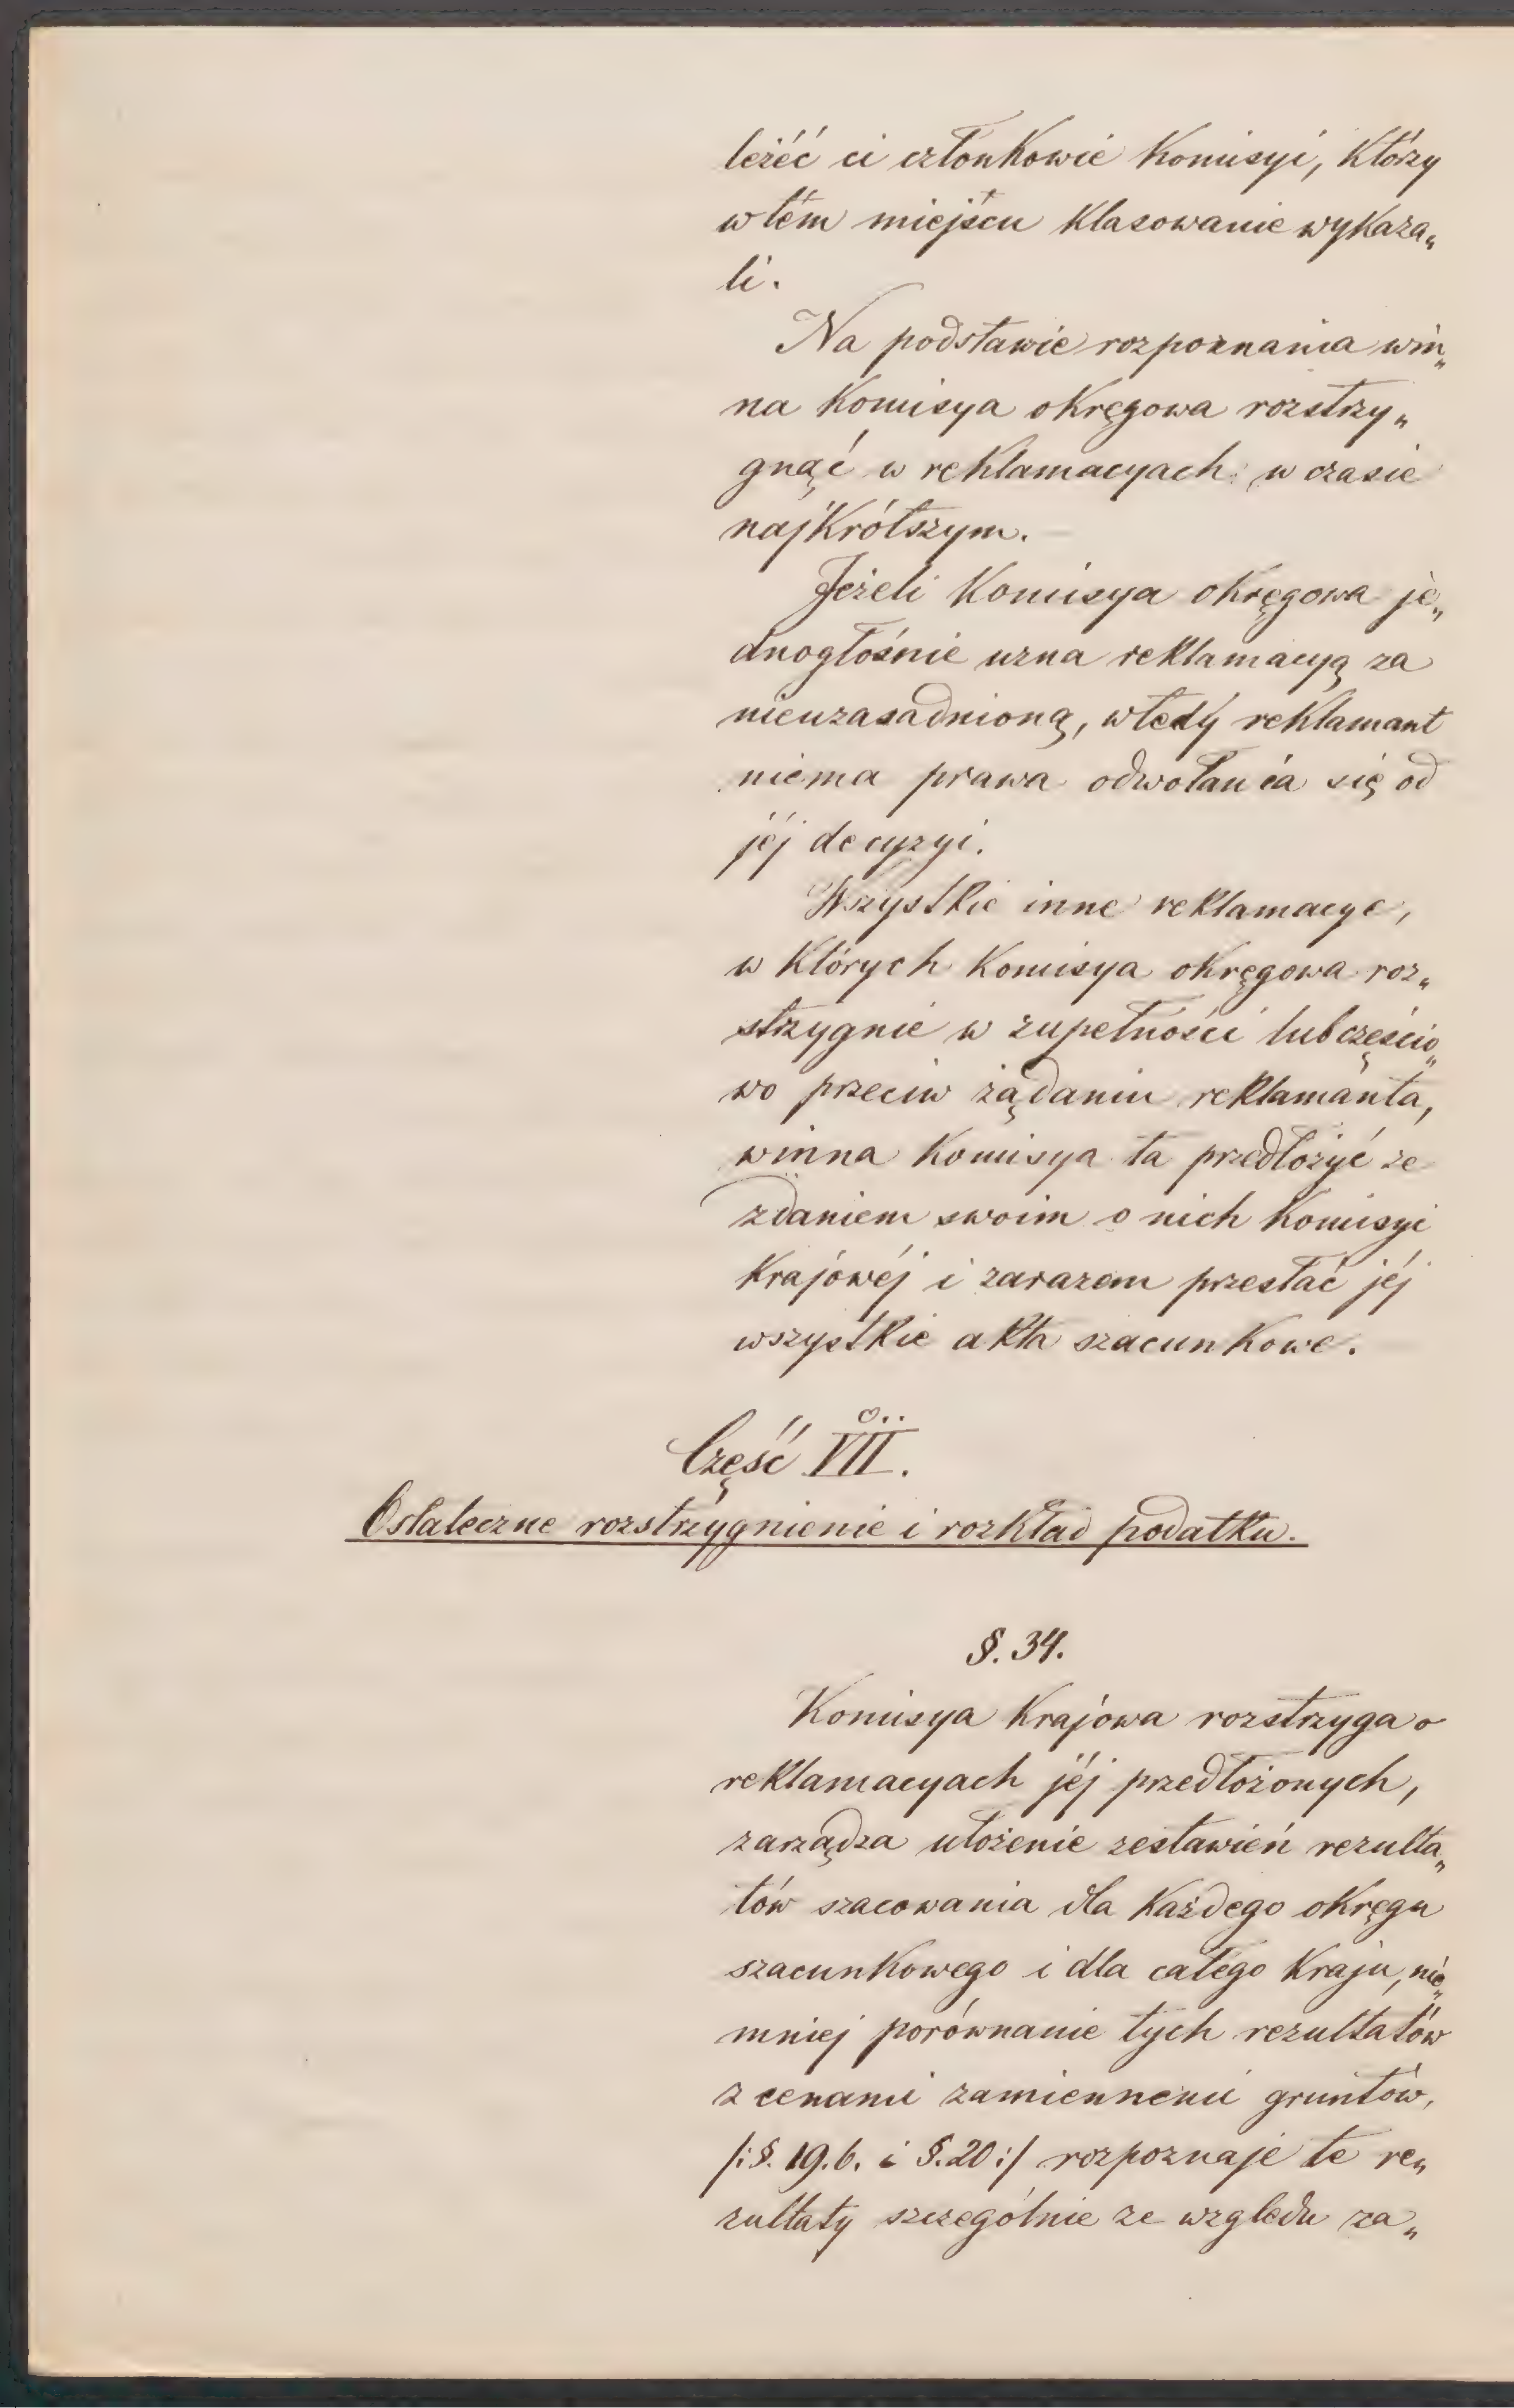 leżéć ci członkowie Komisyi, którzy
w tém miejscu klasowanie wykaza„
li.
Na podstawie rozpoznania win„
na Komisya okręgowa rozstrzy„
gnąć w reklamacyach w czasie
najkrótszym.
Jeżeli Komisya okręgowa je„
dnogłośnie uzna reklamacyą za
nieuzasadnioną, wtedy reklamant
niema prawa odwołania się od
jéj decyzyi.
Wszystkie inne reklamacye,
w których Komisya okręgowa roz„
strzygnie w zupełności lub częścio„
wo przeciw żądaniu reklamanta,
winna Komisya ta przedłożyć ze
zdaniem swoim o nich Komisyi
Krajowéj i zarazem przesłać jéj
wszystkie akta szacunkowe.
Część VII.
Ostateczne rozstrzygnienie i rozkład podatku.
§. 34.
Komisya Krajowa rozstrzyga o
reklamacyach jéj przedłożonych,
zarządza ułożenie zestawień rezulta„
tów szacowania dla każdego okręgu
szacunkowego i dla całego Kraju, nie„
mniej porównanie tych rezultatów
z cenami zamiennemi gruntów,
/:§. 19.b. i §.20:/ rozpoznaje te re„
zultaty szczególnie ze względu za„